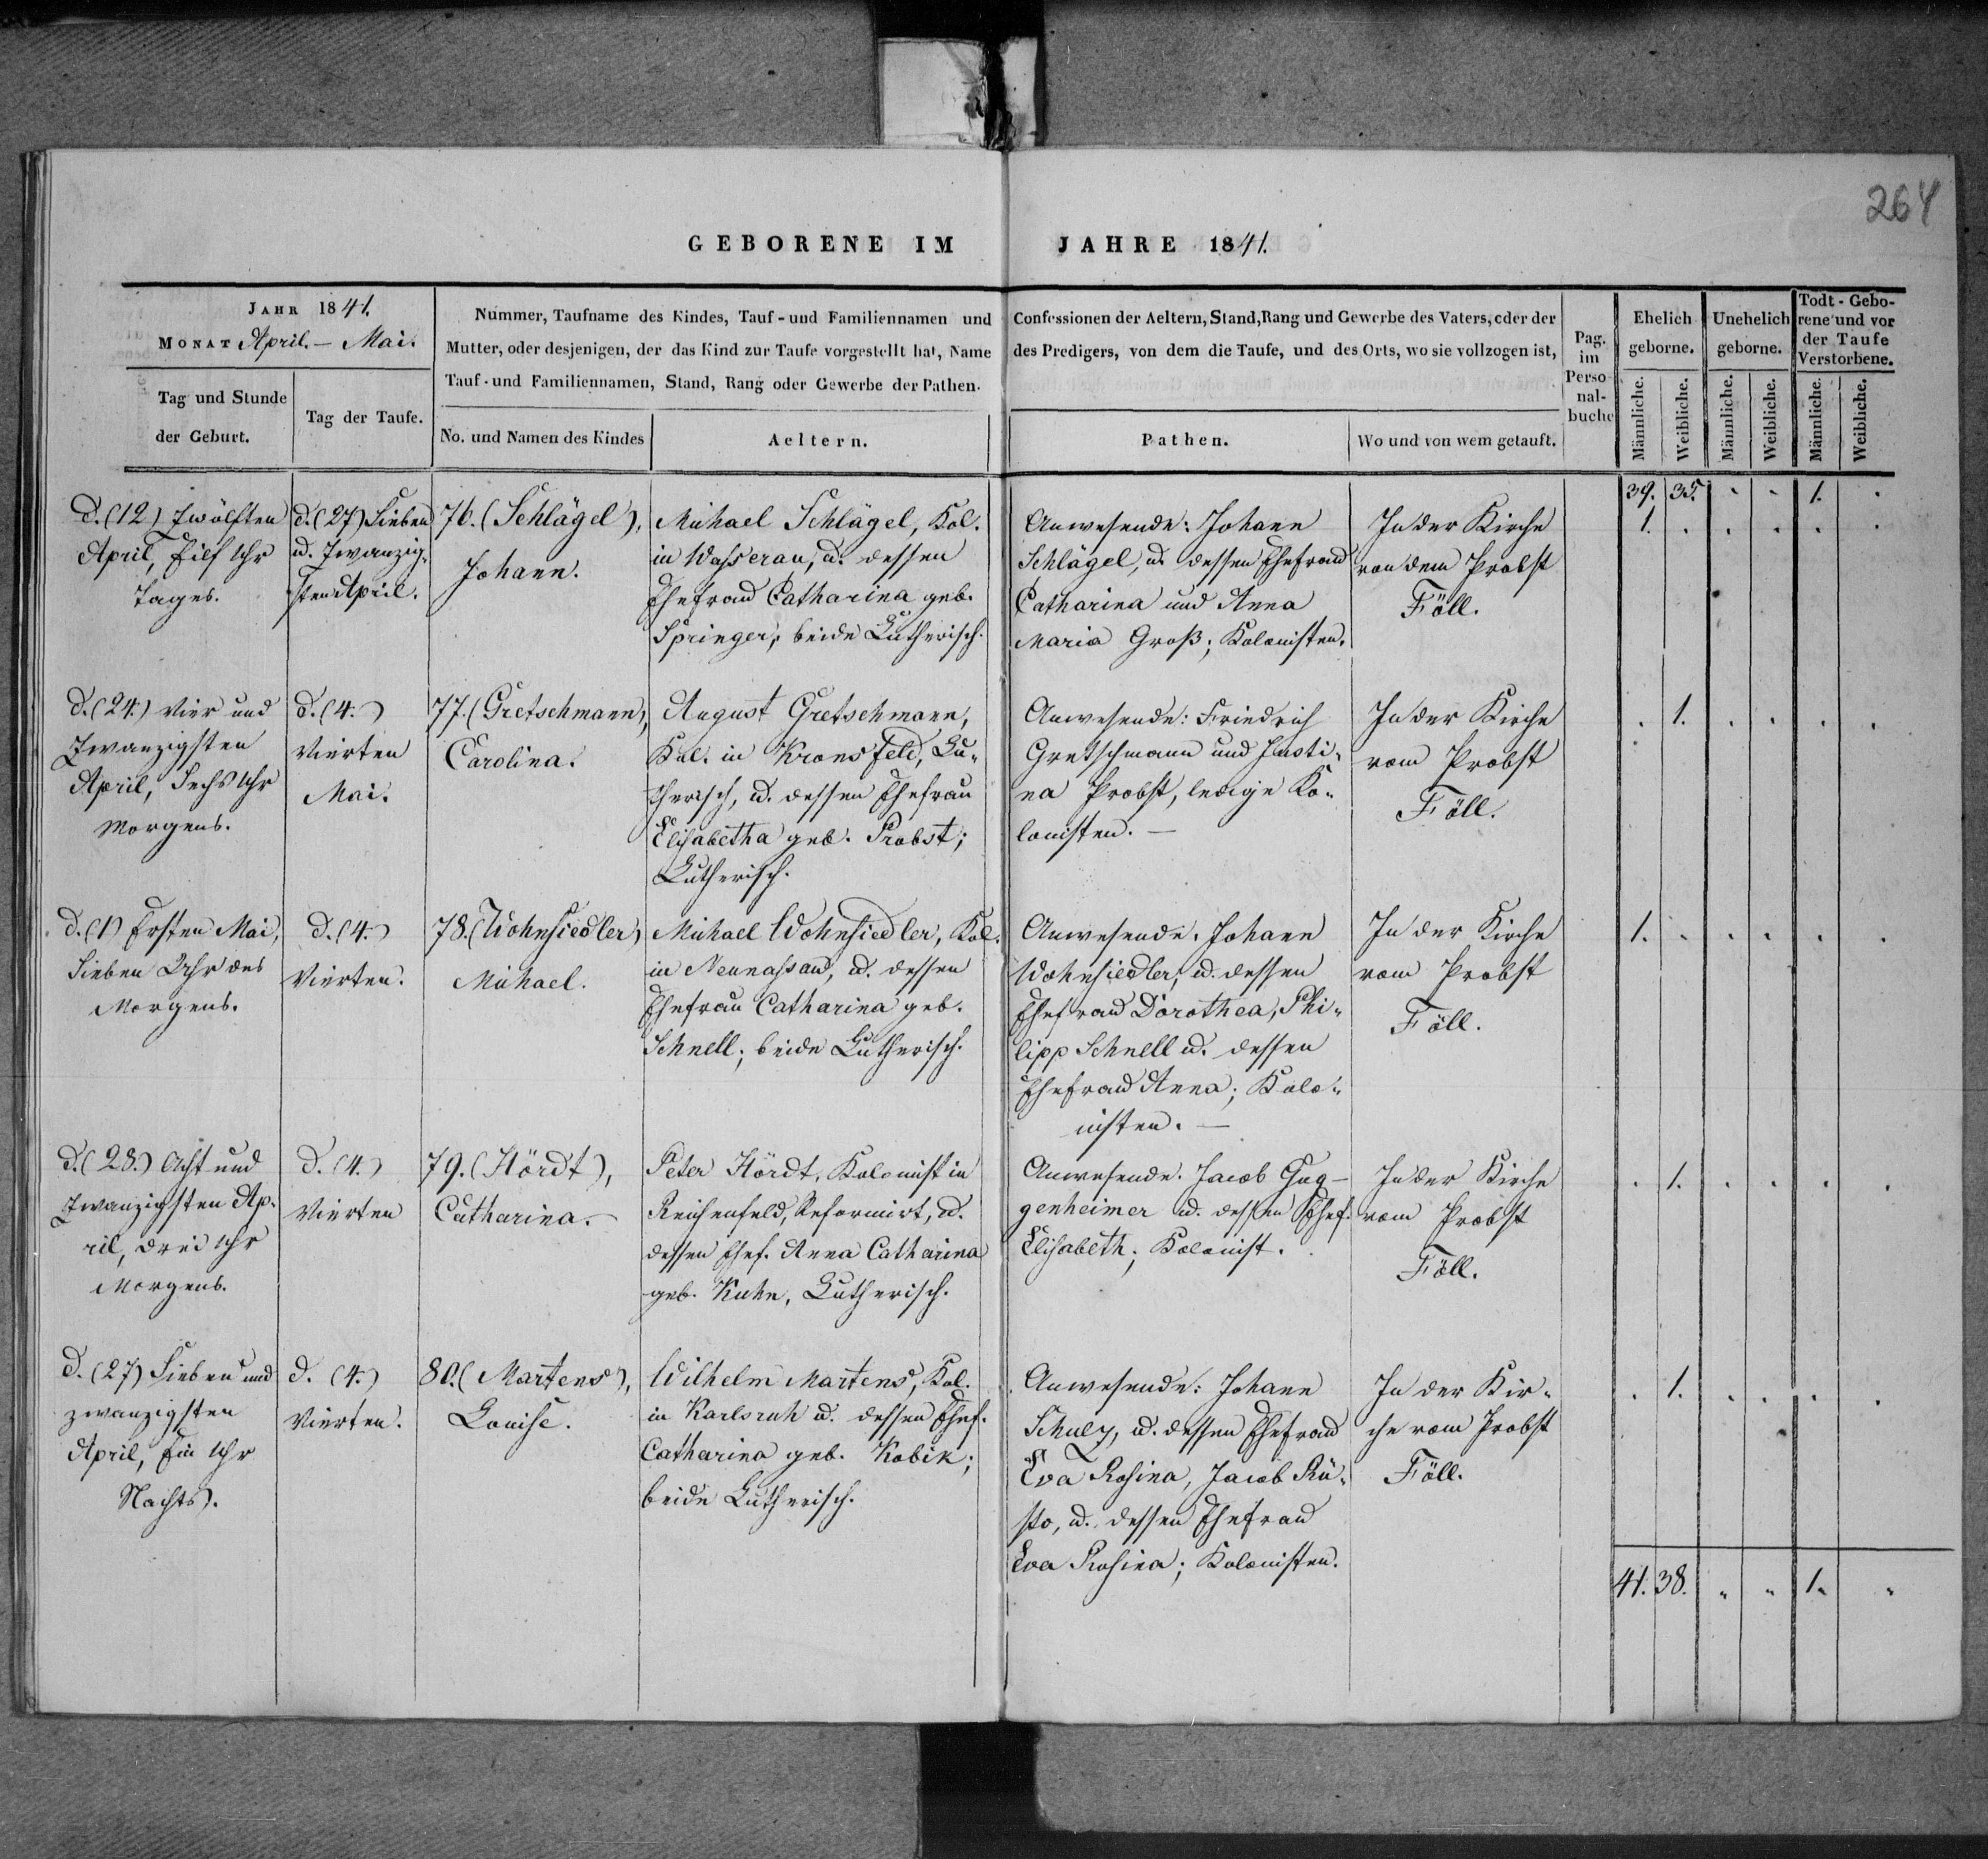 264
GEBORENE IM JAHRE 1841.
JAHR 1841.
MONAT April. — Mai.
Tag und Stunde
der Geburt.
Tag der Taufe.
Nummer, Taufname des Kindes, Tauf- und Familiennamen und
Mutter, oder desjenigen, der das Kind zur Taufe vorgestellt hat, Name
Tauf- und Familiennamen, Stand, Rang oder Gewerbe der Pathen.
No. und Namen des Kindes
Aeltern.
Confessionen der Aeltern, Stand, Rang und Gewerbe des Vaters, oder der
des Predigers, von dem die Taufe, und des Orts, wo sie vollzogen ist,
Pathen.
Wo und von wem getauft.
Pag.
im
Perso-
nal-
buche
Ehelich
geborne.
Unehelich
geborne.
Todt-Gebo-
rene und vor
der Taufe
Verstorbene.
Männliche.
Weibliche.
Männliche.
Weibliche.
Männliche.
Weibliche.
39. 35. " " 1. "
d. (12) Zwölften
April, Eilf Uhr
Tages.
d. (27) Sieben
u. Zwanzig-
sten April.
76. (Schlägel),
Johann.
Michael Schlägel, Kol.
in Wasserau, u. dessen
Ehefrau Catharina geb.
Springer; beide Lutherisch.
Anwesende: Johann
Schlägel, u. dessen Ehefrau
Catharina und Anna
Maria Groß; Kolonisten.
In der Kirche
von dem Probst
Föll.
1. . . . . .
d. (24.) Vier und
Zwanzigsten
April, Sechs Uhr
Morgens.
d. (4.)
Vierten
Mai.
77. (Gretschmann),
Carolina.
August Gretschmann,
Kol. in Kronsfeld, Lu-
therisch, u. dessen Ehefrau
Elisabetha geb. Probst;
Lutherisch.
Anwesende: Friedrich
Gretschmann und Justi-
na Probst, ledige Ko-
lonisten. —
In der Kirche
vom Probst
Föll.
. 1. . . . .
d. (1) Ersten Mai,
Sieben Uhr des
Morgens.
d. (4.)
Vierten.
78. (Wohnsiedler)
Michael.
Michael Wohnsiedler, Kol.
in Neunassau, u. dessen
Ehefrau Catharina geb.
Schnell; beide Lutherisch.
Anwesende: Johann
Wohnsiedler, u. dessen
Ehefrau Dorothea, Phi-
lipp Schnell u. dessen
Ehefrau Anna; Kolo-
nisten. —
In der Kirche
vom Probst
Föll.
1. . . . . .
d. (28.) Acht und
Zwanzigsten Ap-
ril, Drei Uhr
Morgens.
d. (4.)
Vierten
79. (Hördt),
Catharina. —
Peter Hördt, Kolonist in
Reichenfeld, Reformirt, u.
dessen Ehef. Anna Catharina
geb. Kuhn, Lutherisch.
Anwesende. Jacob Gug-
genheimer u. dessen Ehef.
Elisabeth; Kolonist.
In der Kirche
vom Probst
Föll.
. 1. . . . .
d. (27) Sieben und
zwanzigsten
April, Ein Uhr
Nachts.
d. (4.)
Vierten.
80. (Martens),
Louise.
Wilhelm Martens, Kol.
in Karlsruh u. dessen Ehef.
Catharina geb. Kobik;
beide Lutherisch.
Anwesende: Johann
Schulz, u. dessen Ehefrau
Eva Rosina, Jacob Rü-
sto, u. dessen Ehefrau
Eva Rosina; Kolonisten.
In der Kir-
che vom Probst
Föll.
. 1. . . . .
41. 38. " " 1. "